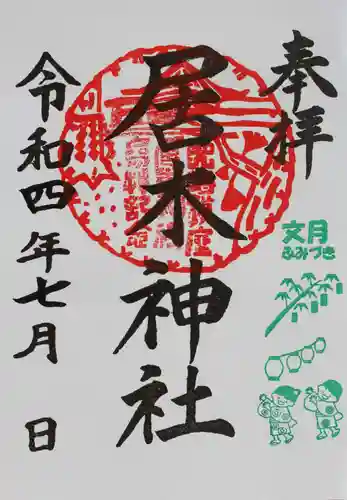 奉拝
文月
ふみづき
居木神社
令和四年七月 日